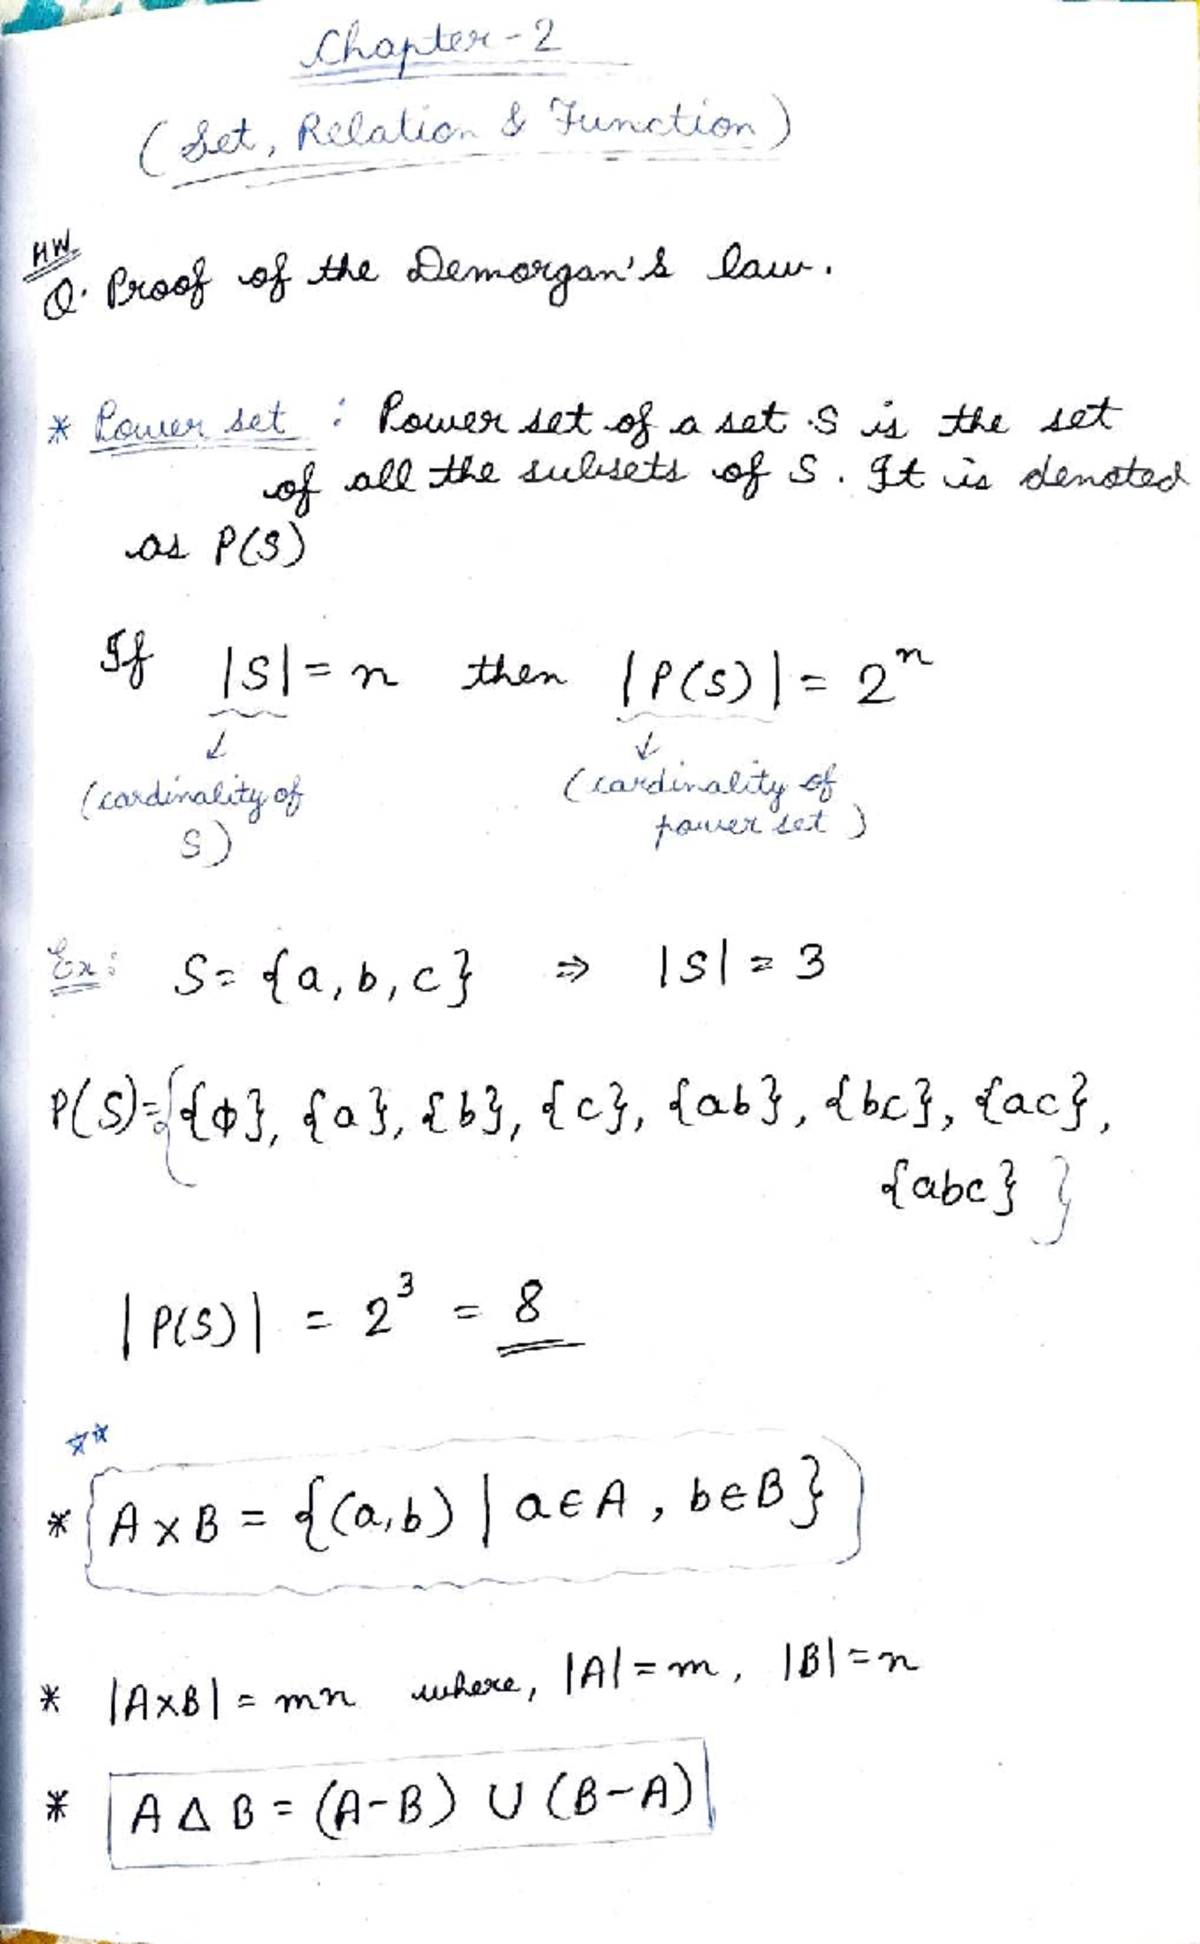 Chapter-2
(Set, Relation & Function)
HW.
Q. Proof of the Demorgan's law.
* Power set : Power set of a set S is the set
of all the subsets of S. It is denoted
as P(S)
If |S| = n then |P(S)| = 2ⁿ
↓ ↓
(cardinality of (cardinality of
S) power set)
Ex: S = {a, b, c} ⇒ |S| = 3
P(S) = {{ϕ}, {a}, {b}, {c}, {ab}, {bc}, {ac},
{abc}}
|P(S)| = 2³ = 8
☆☆
* A × B = {(a,b) | a ∈ A, b ∈ B}
* |A×B| = mn where, |A| = m, |B| = n
* A Δ B = (A-B) ∪ (B-A)